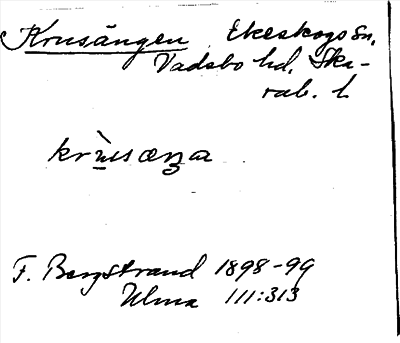 Krusängen Ekeskogs Sn,
Vadsbo hd, Ska-
rab. l.
krùsæŋa
F. Bergstrand 1898-99
Ulma 111:313